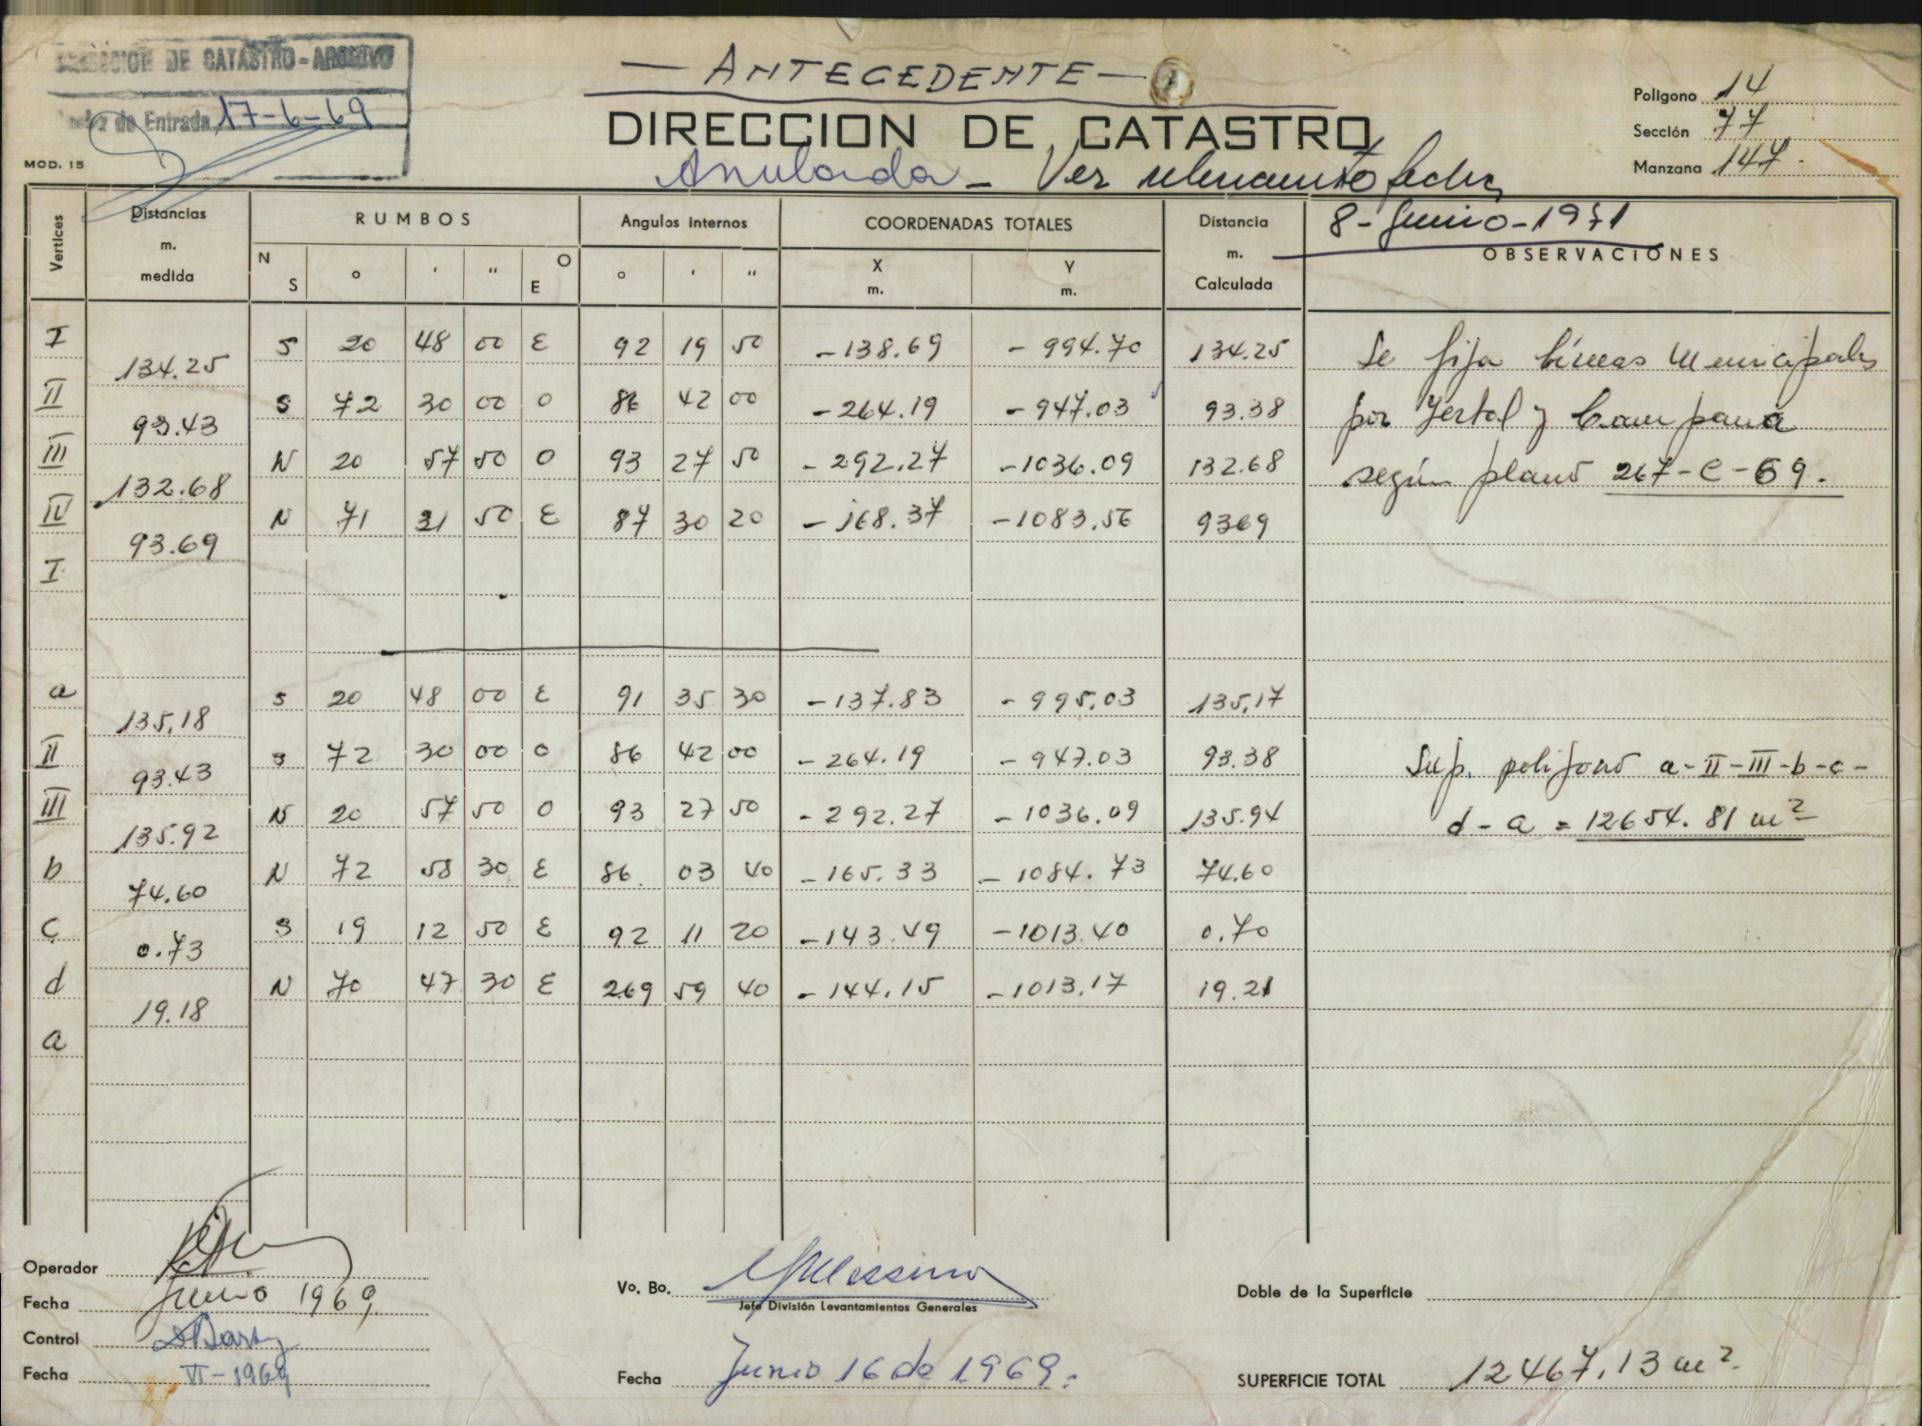 DIRECCION DE CATASTRO - ARCHIVO
de Entrada 17-6-69
MOD. 15
— ANTECEDENTE —
DIRECCION DE CATASTRO
Anulada - Ver relevamiento fecha
8 - Junio - 1971
Polígono 14
Sección 77
Manzana 147.
Vertices Distancias m. medida RUMBOS Angulos internos COORDENADAS TOTALES Distancia m. Calculada OBSERVACIONES
N S ° ' " O E ° ' " X m. Y m.
I S 20 48 00 E 92 19 50 -138.69 -994.70 134.25 Se fija líneas Municipales
134.25
II S 72 30 00 O 86 42 00 -264.19 -947.03 93.38 por Yerbal y Campana
93.43
III N 20 57 50 O 93 27 50 -292.27 -1036.09 132.68 según plano 267-C-69.
132.68
IV N 71 31 50 E 87 30 20 -168.37 -1083.56 9369
93.69
I
a S 20 48 00 E 91 35 30 -137.83 -995.03 135,17
135,18
II S 72 30 00 O 86 42 00 -264.19 -947.03 93.38 Sup. polígono a-II-III-b-c-
93.43
III N 20 57 50 O 93 27 50 -292.27 -1036.09 135.94 d-a = 12654.81 m²
135.92
b N 72 58 30 E 86 03 40 -165.33 -1084.73 74.60
74.60
c S 19 12 50 E 92 11 20 -143.49 -1013.40 0.70
0.73
d N 70 47 30 E 269 59 40 -144.15 -1013.17 19.21
19.18
a
Operador
Fecha Junio 1969
Control
Fecha VI-1969
Vo. Bo.
Jefe División Levantamientos Generales
Fecha Junio 16 de 1969.
Doble de la Superficie
SUPERFICIE TOTAL 12467,13 m².